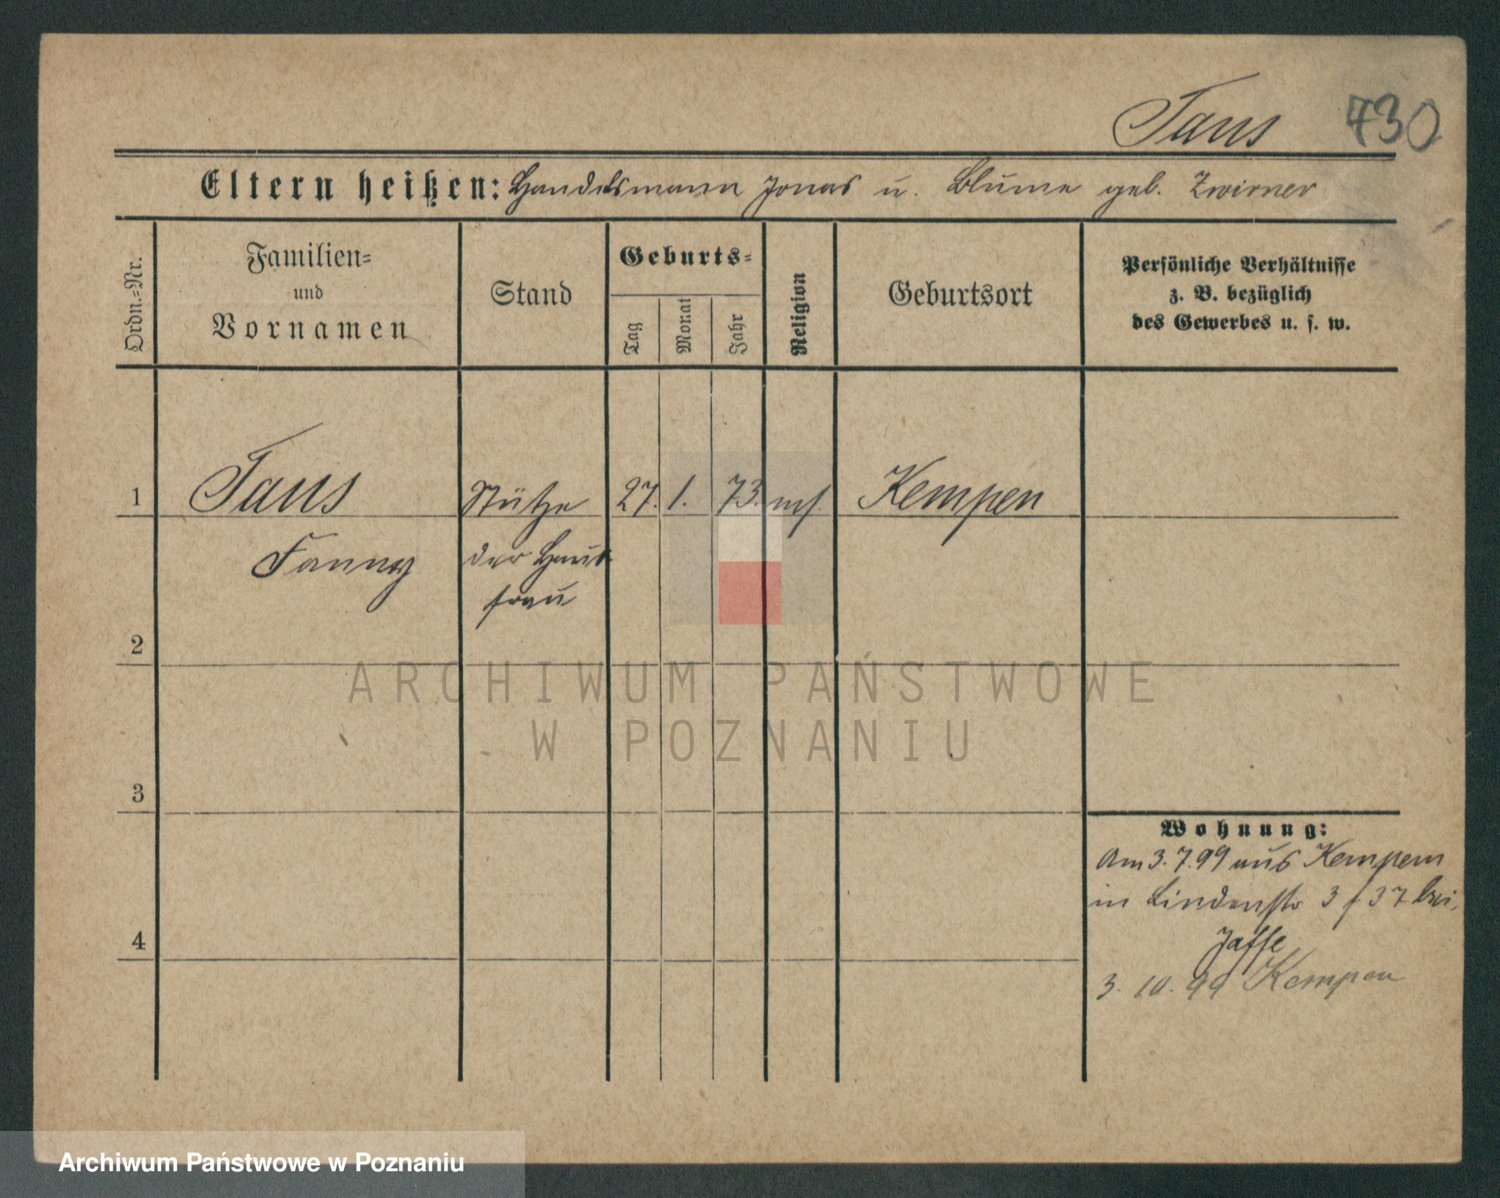 Taus 730
Eltern heißen: Handelsmann Jonas u. Blume geb. Zwirner
Ordn.=Nr.
Familien=
und
Vornamen
Stand
Geburts=
Tag
Monat
Jahr
Religion
Geburtsort
Persönliche Verhältnisse
z. B. bezüglich
des Gewerbes u. s. w.
1 Taus Stütze 27. 1. 73. mos. Kempen
Fanny der Haus
frau
2
ARCHIWUM PAŃSTWOWE
W POZNANIU
3
Wohnung:
Am 3.7.99 aus Kempen
in Lindenstr 3 f 37 bei
Jaffe
4
3. 10. 99 Kempen
Archiwum Państwowe w Poznaniu